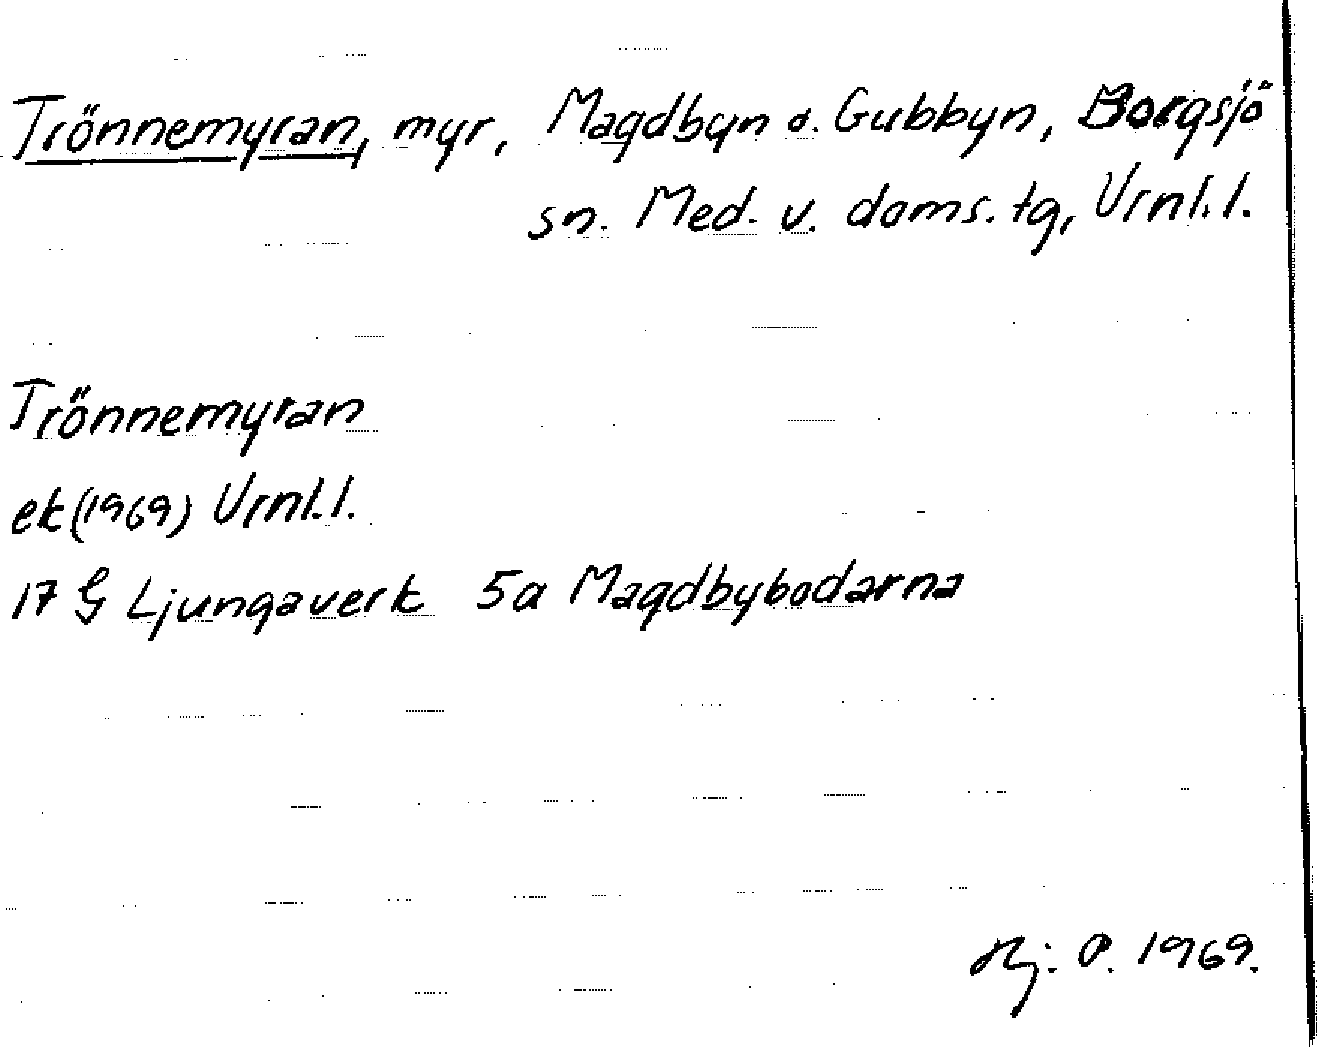 Trönnemyran, myr, Magdbyn o. Gubbyn, Borgsjö
sn. Med. v. doms. tg, Vrnl.l.
Trönnemyran
ek (1969) Vrnl.l.
17 G Ljungaverk 5a Magdbybodarna
Hj. P. 1969.